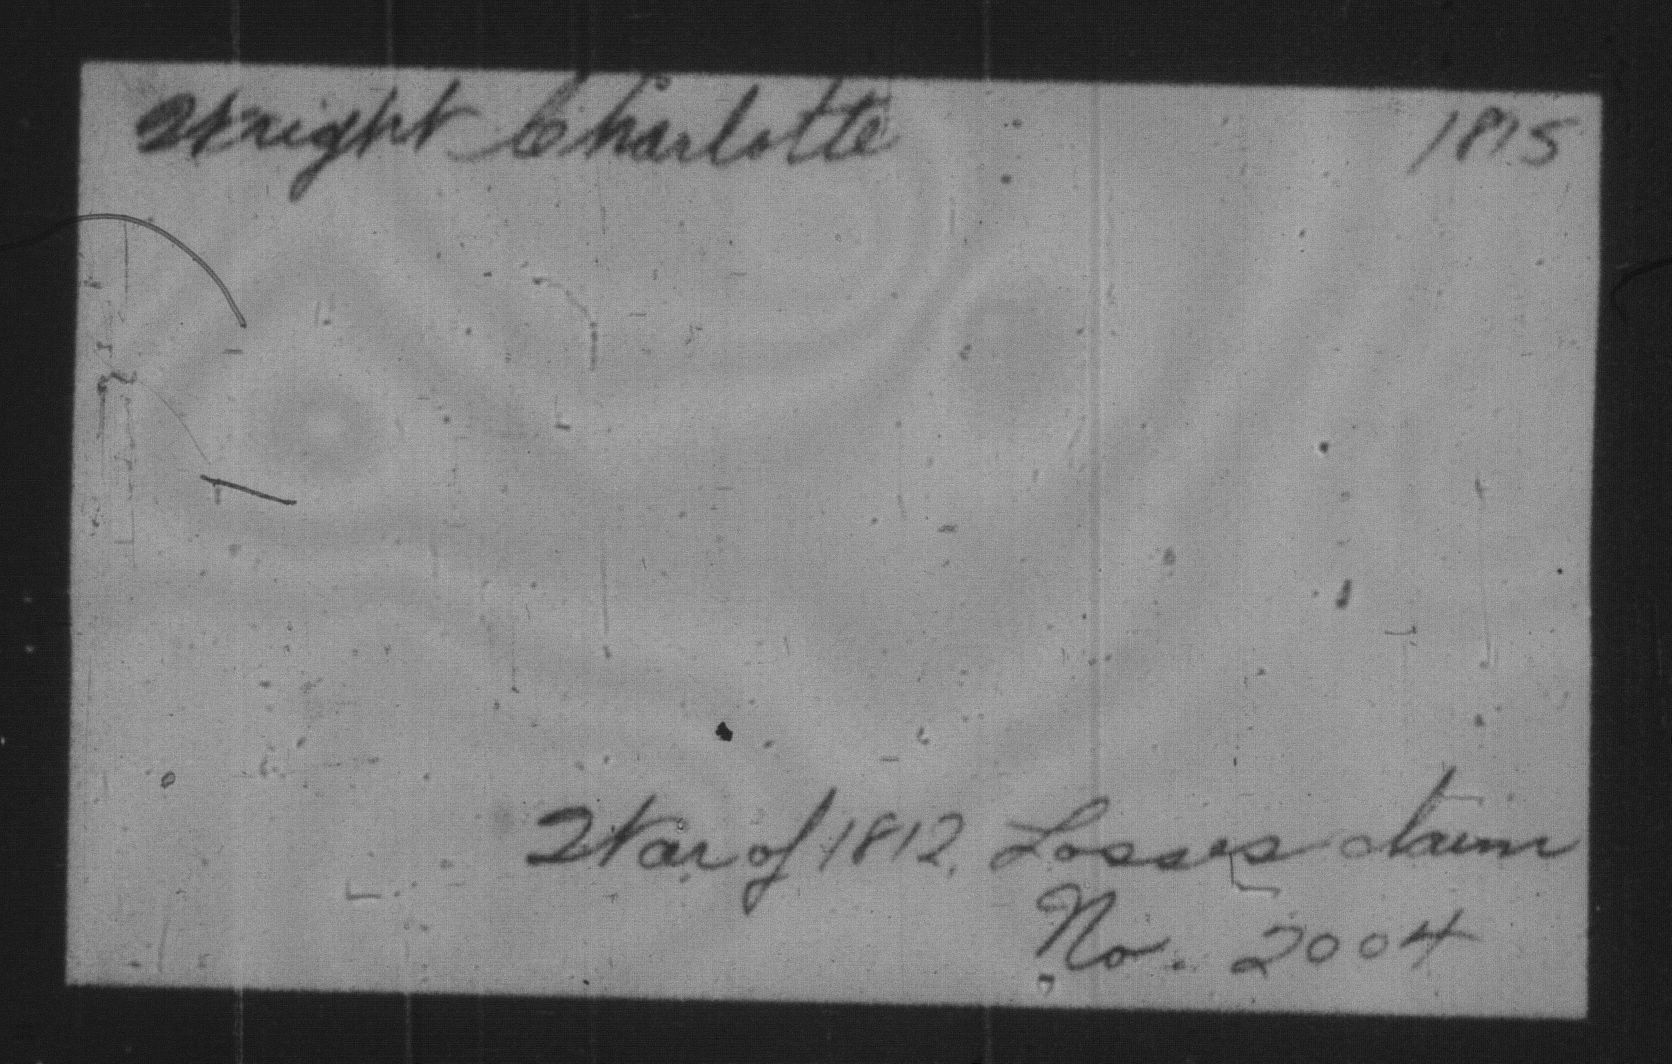 Wright Charlotte 1815
War of 1812. Losses claim
No. 2004